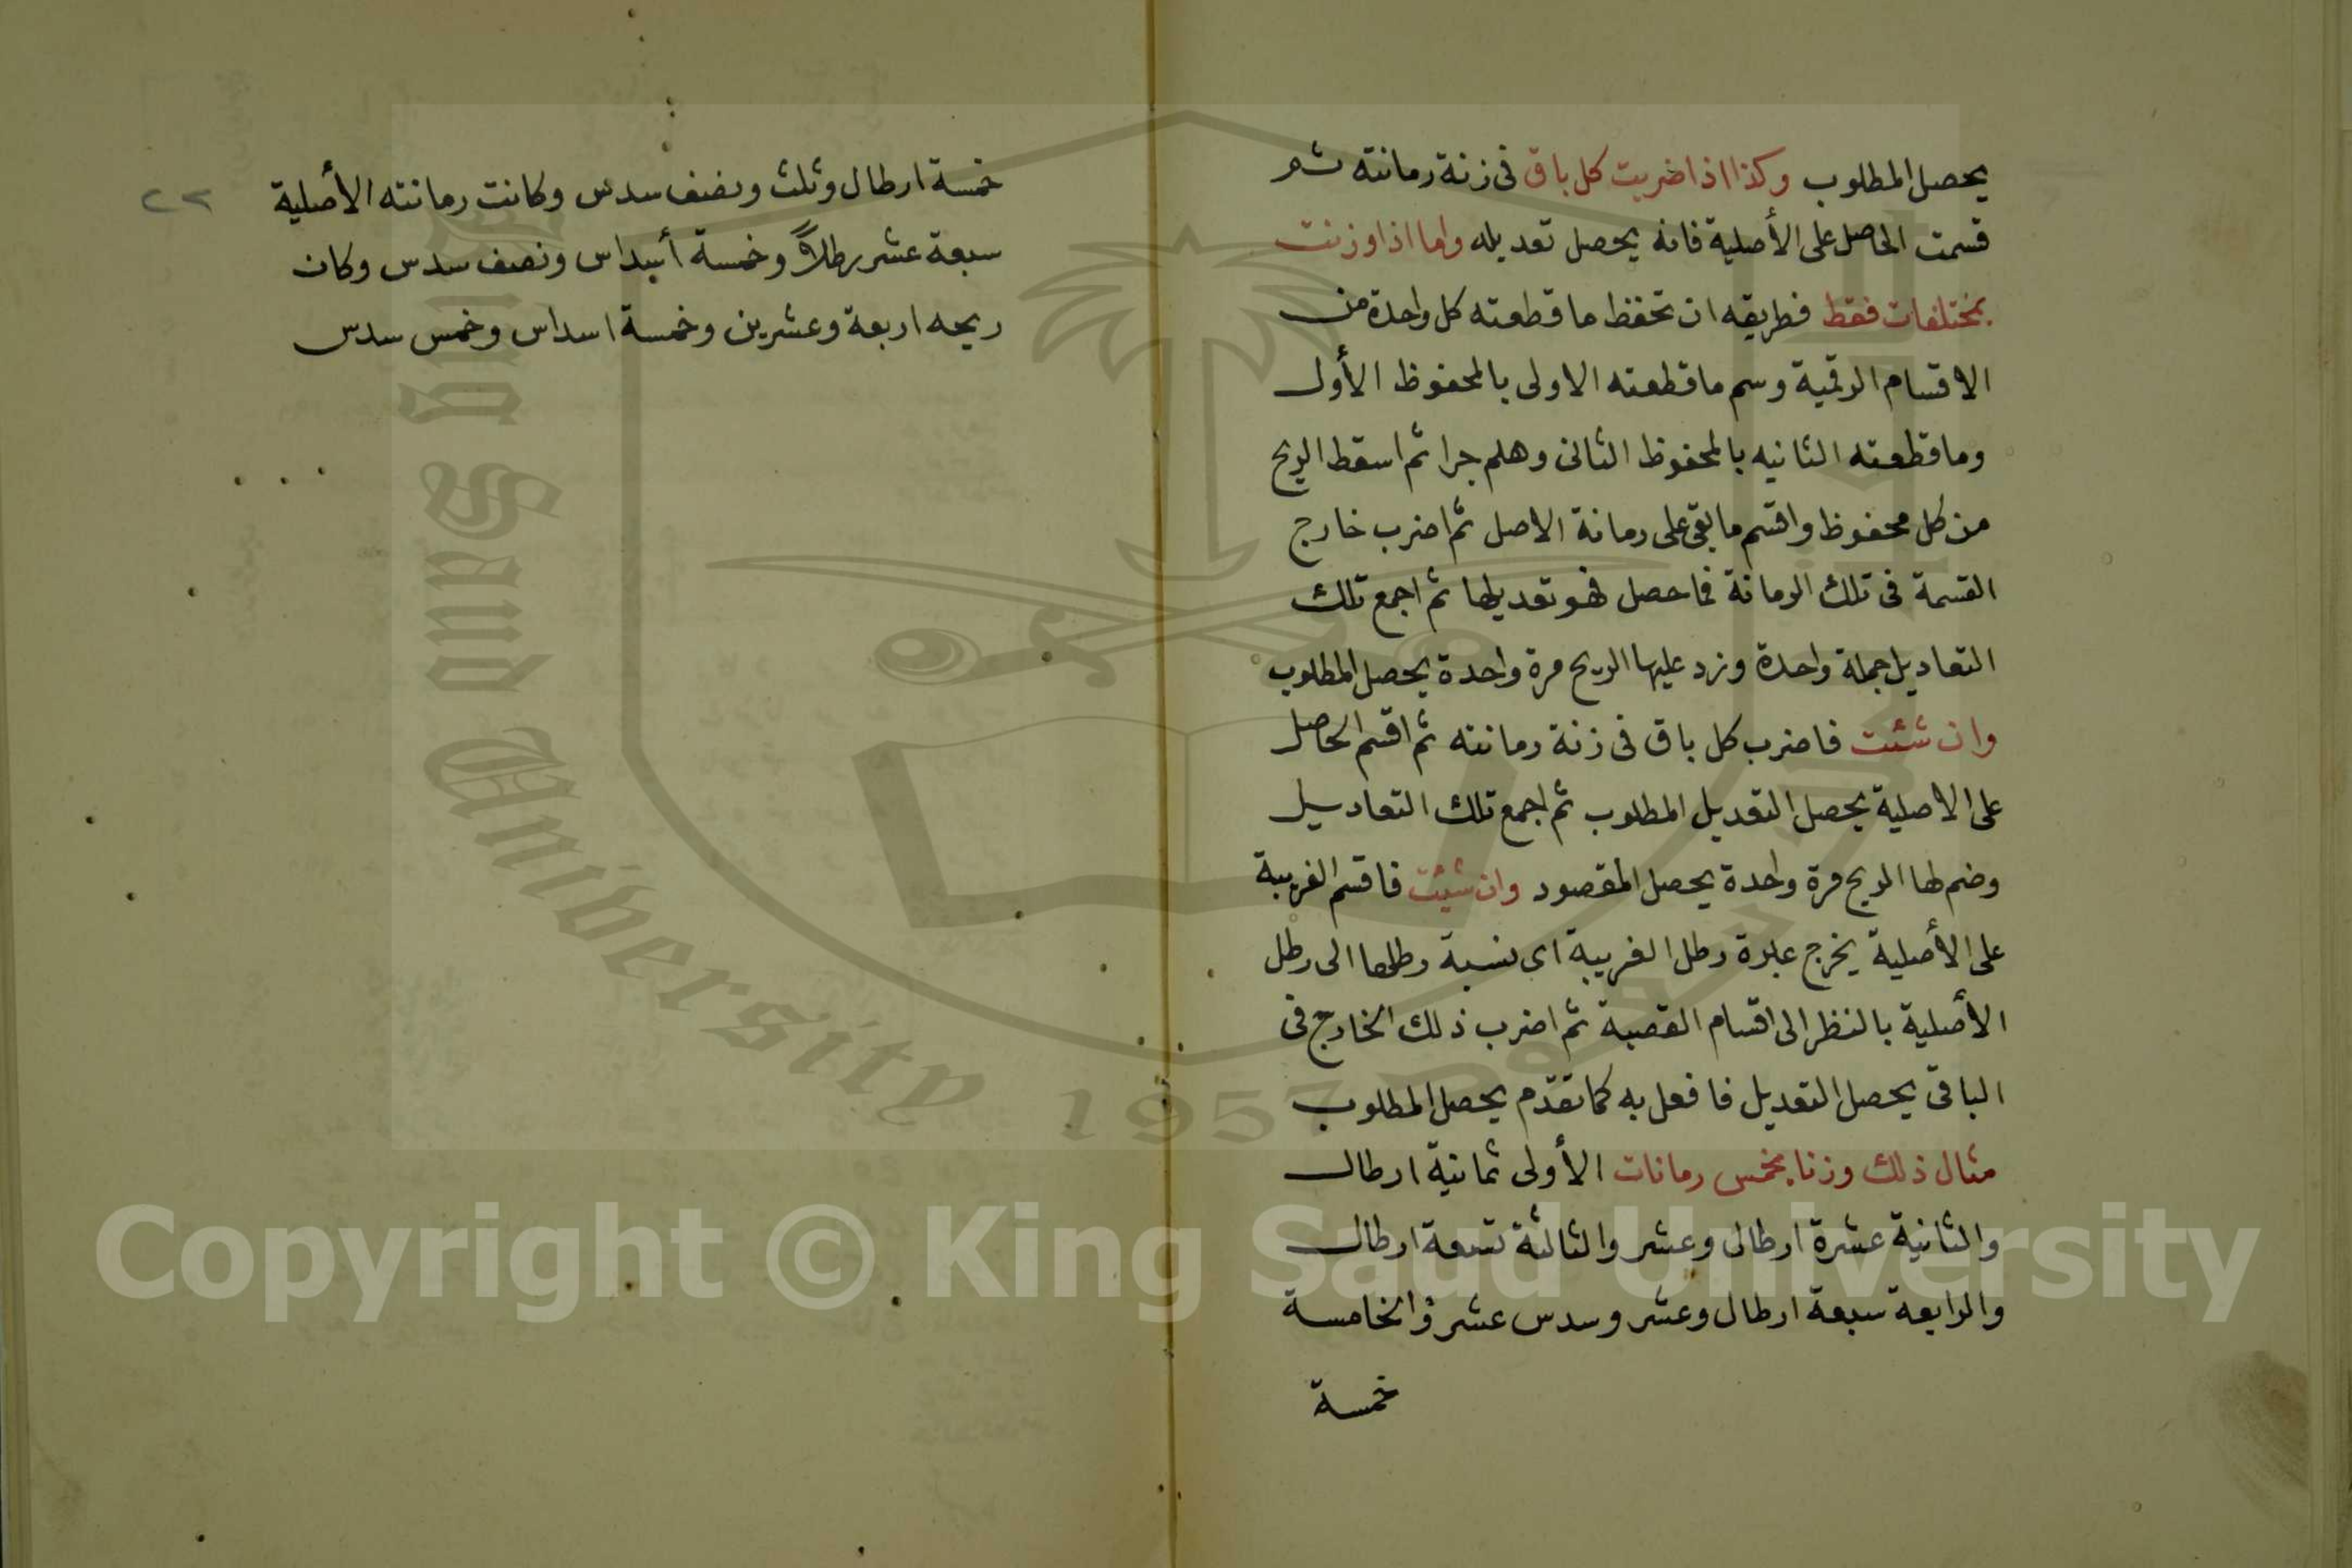 يحصل المطلوب وكذا اذا ضربت كل باق فى زنة رمانته ثم
قسمت الحاصل على الأصلية فانه يحصل تعديله واما اذا وزنت
بمختلفات فقط فطريقه ان تحفظ ما قطعته كل واحدة من
الاقسام الرقمية وسم ما قطعته الاولى بالمحفوظ الأول
وما قطعته الثانيه بالمحفوظ الثانى وهلم جرا ثم اسقط الريح
من كل محفوظ واقسم ما بقى على رمانة الاصل ثم اضرب خارج
القسمة فى تلك الرمانة فما حصل فهو تعديلها ثم اجمع تلك
التعاديل جملة واحدة وزد عليها الريح مرة واحدة يحصل المطلوب
وان شئت فاضرب كل باق فى زنة رمانته ثم اقسم الحاصل
على الاصلية يحصل التعديل المطلوب ثم اجمع تلك التعاديل
وضم لها الريح مرة واحدة يحصل المقصود وان شئت فاقسم الغريبة
على الأصلية يخرج عبرة رطل الغريبة اى نسبة رطلها الى رطل
الأصلية بالنظر الى اقسام القصبة ثم اضرب ذلك الخارج فى
الباقى يحصل التعديل فافعل به كما تقدم يحصل المطلوب
مثال ذلك وزنا بخمس رمانات الأولى ثمانية ارطال
والثانية عشرة ارطال وعشر والثالثة تسعة ارطال
والرابعة سبعة ارطال وعشر وسدس عشر والخامسة
خمسة
٢٢
خمسة ارطال وثلث ونصف سدس وكانت رمانته الأصلية
سبعة عشر رطلاً وخمسة أسداس ونصف سدس وكان
ريحه اربعة وعشرين وخمسة اسداس وخمس سدس
King Saud University 1957
Copyright © King Saud University